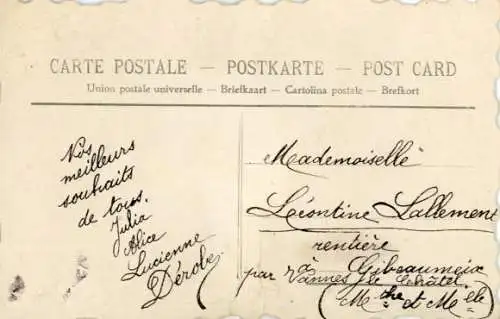 CARTE POSTALE — POSTKARTE — POST CARD
Union postale universelle — Briefkaart — Cartolina postale — Brefkort
Vos
meilleurs
souhaits
de tous.
Julia
Alice
Lucienne
Dérobe
Mademoiselle
Léontine Lallement
rentière
à Gibeaumeix
par Vannes le Châtel
(Mthe et Mlle)